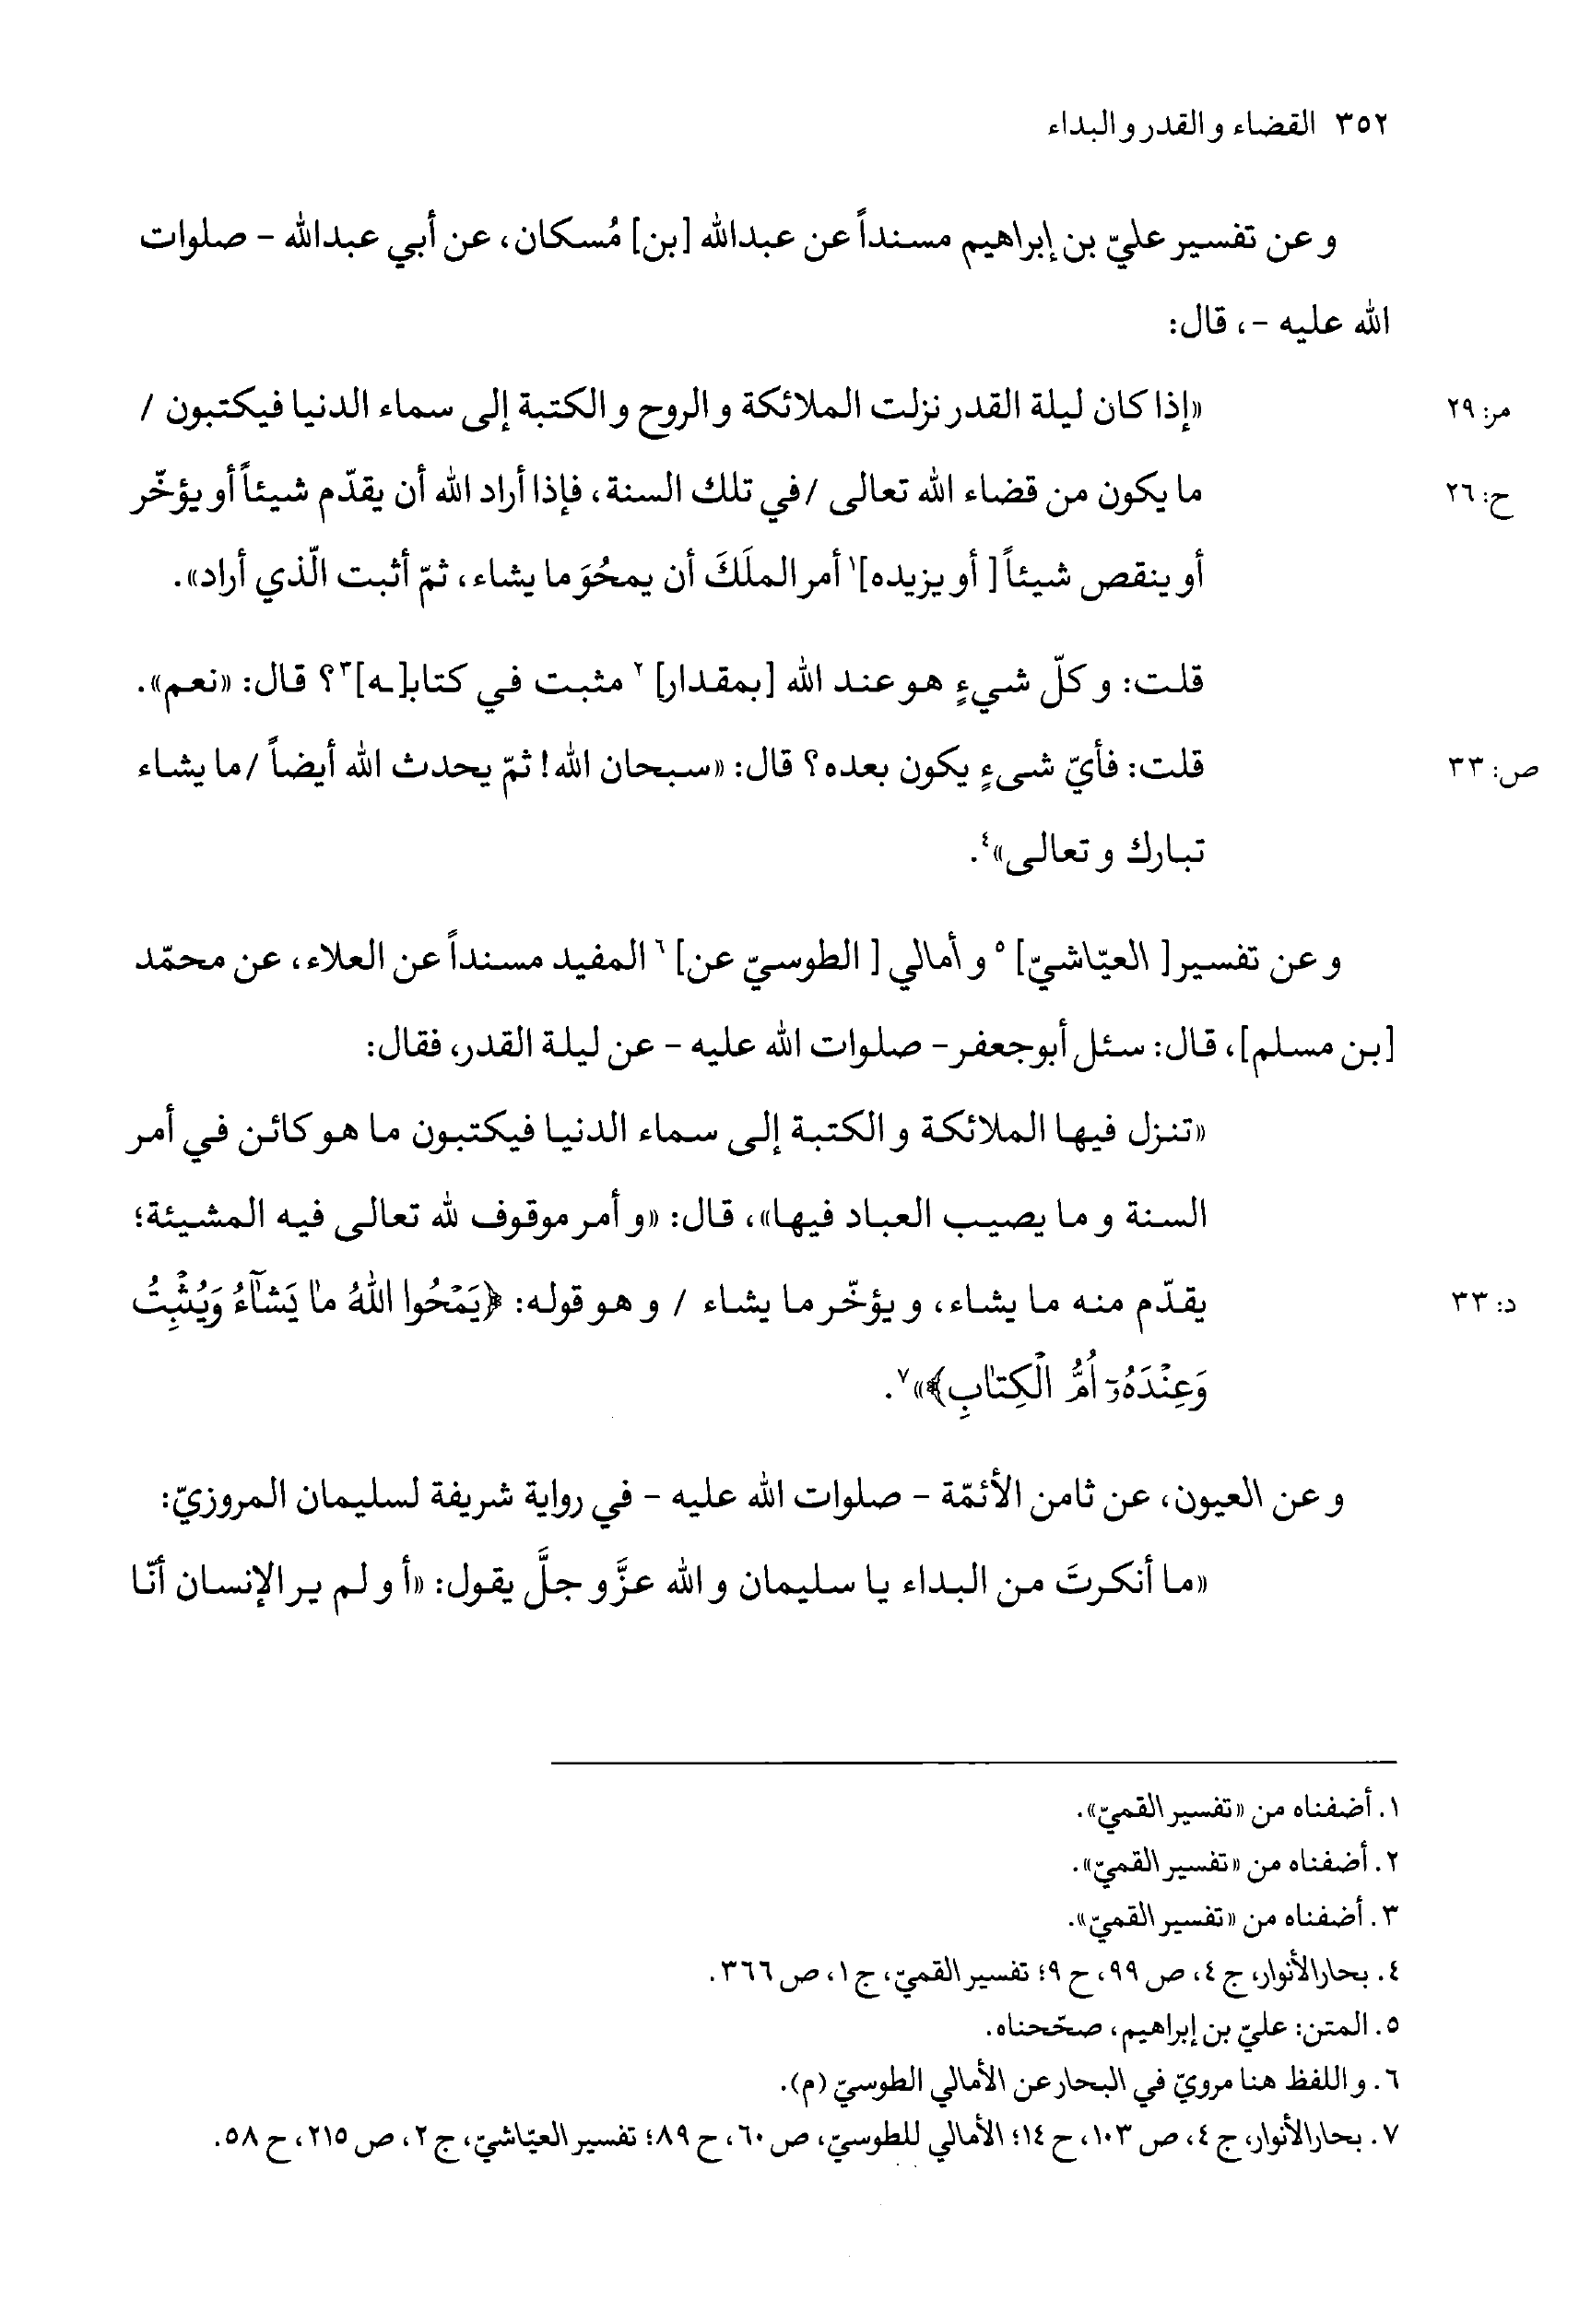 ٣٥٢ القضاء و القدر و البداء
و عن تفسير عليّ بن إبراهيم مسنداً عن عبدالله [بن] مُسكان، عن أبي عبدالله – صلوات
الله عليه –، قال:
مر: ٢٩ «إذا كان ليلة القدر نزلت الملائكة و الروح و الكتبة إلى سماء الدنيا فيكتبون /
ح: ٢٦ ما يكون من قضاء الله تعالى / في تلك السنة، فإذا أراد الله أن يقدّم شيئاً أو يؤخّر
أو ينقص شيئاً [ أو يزيده]١ أمر الملَكَ أن يمحُوَ ما يشاء، ثمّ أثبت الّذي أراد».
قلت: و كلّ شيءٍ هو عند الله [بمقدار] ٢ مثبت في كتابـ[ـه]٣؟ قال: «نعم».
ص: ٣٣ قلت: فأيّ شىءٍ يكون بعده؟ قال: «سبحان الله! ثمّ يحدث الله أيضاً / ما يشاء
تبارك و تعالى»٤.
و عن تفسير[ العيّاشيّ] ٥ و أمالي [ الطوسيّ عن] ٦ المفيد مسنداً عن العلاء، عن محمّد
[بن مسلم]، قال: سئل أبوجعفر – صلوات الله عليه – عن ليلة القدر، فقال:
«تنزل فيها الملائكة و الكتبة إلى سماء الدنيا فيكتبون ما هو كائن في أمر
السنة و ما يصيب العباد فيها»، قال: «و أمر موقوف لله تعالى فيه المشيئة؛
د: ٣٣ يقدّم منه ما يشاء، و يؤخّر ما يشاء / و هو قوله: ﴿يَمْحُوا اللهُ مٰا يَشٰآءُ وَيُثْبِتُ
وَعِنْدَهُٓ اُمُّ الْكِتٰابِ﴾»٧.
و عن العيون، عن ثامن الأئمّة – صلوات الله عليه – في رواية شريفة لسليمان المروزيّ:
«ما أنكرتَ من البداء يا سليمان و الله عزَّ و جلَّ يقول: «أ و لم ير الإنسان أنّا
١. أضفناه من «تفسير القميّ».
٢. أضفناه من «تفسير القميّ».
٣. أضفناه من «تفسير القميّ».
٤. بحارالأنوار، ج ٤، ص ٩٩، ح ٩؛ تفسير القميّ، ج ١، ص ٣٦٦.
٥. المتن: عليّ بن إبراهيم، صحّحناه.
٦. و اللفظ هنا مرويّ في البحار عن الأمالي الطوسيّ (م).
٧. بحارالأنوار، ج ٤، ص ١٠٣، ح ١٤؛ الأمالي للطوسيّ، ص ٦٠، ح ٨٩؛ تفسير العيّاشيّ، ج ٢، ص ٢١٥، ح ٥٨.